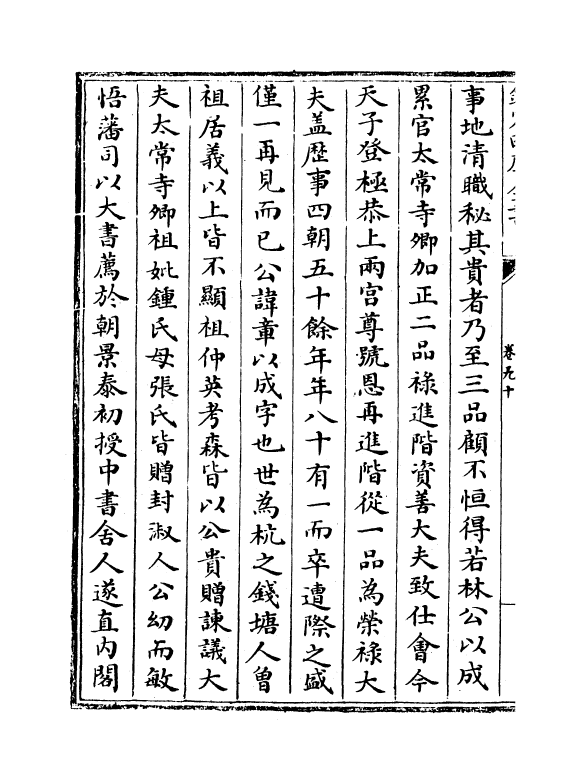 卷九十
事地清職秘其貴者乃至三品顧不恒得若林公以成
累官太常寺卿加正二品祿進階資善大夫致仕會今
天子登極恭上兩宮尊號恩再進階從一品為榮祿大
夫盖歴事四朝五十餘年年八十有一而卒遭際之盛
僅一再見而已公諱章以成字也世為杭之錢塘人曾
祖居義以上皆不顯祖仲英考森皆以公貴贈諫議大
夫太常寺卿祖妣鍾氏母張氏皆贈封淑人公幼而敏
悟藩司以大書薦於朝景泰初授中書舍人遂直内閣